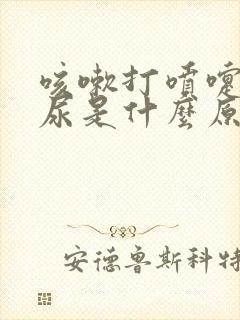 咳嗽打喷嚏
尿是什麼原
安德鲁斯科特